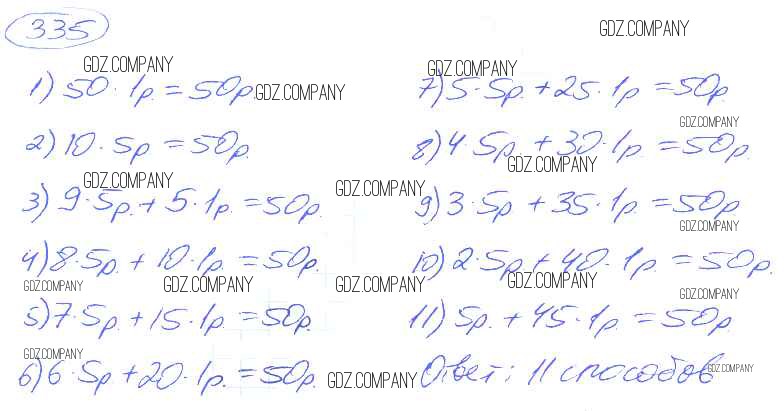 335
GDZ.COMPANY
GDZ.COMPANY
1) 50·1р. = 50р.
GDZ.COMPANY
2) 10·5р = 50р.
GDZ.COMPANY
3) 9·5р. + 5·1р. = 50р.
GDZ.COMPANY
4) 8·5р. + 10·1р. = 50р.
GDZ.COMPANY
GDZ.COMPANY
5) 7·5р. + 15·1р. = 50р.
GDZ.COMPANY
6) 6·5р + 20·1р. = 50р.
GDZ.COMPANY
GDZ.COMPANY
7) 5·5р. + 25·1р = 50р.
GDZ.COMPANY
8) 4·5р + 30·1р. = 50р.
GDZ.COMPANY
GDZ.COMPANY
9) 3·5р + 35·1р. = 50р
GDZ.COMPANY
10) 2·5р. + 40·1р = 50р.
GDZ.COMPANY
GDZ.COMPANY
GDZ.COMPANY
11) 5р. + 45·1р. = 50р.
Ответ: 11 способов
GDZ.COMPANY